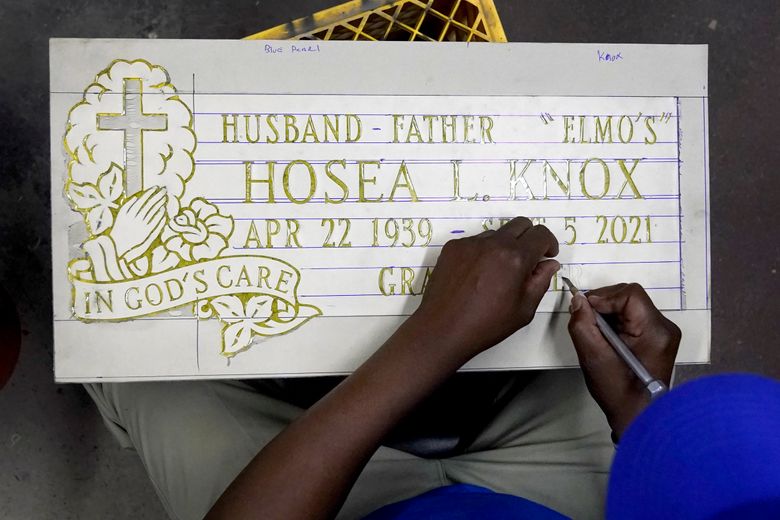 Blue Pearl
Knox
HUSBAND - FATHER "ELMO'S"
HOSEA L. KNOX
APR 22 1939 - 5 2021
IN GOD'S CARE